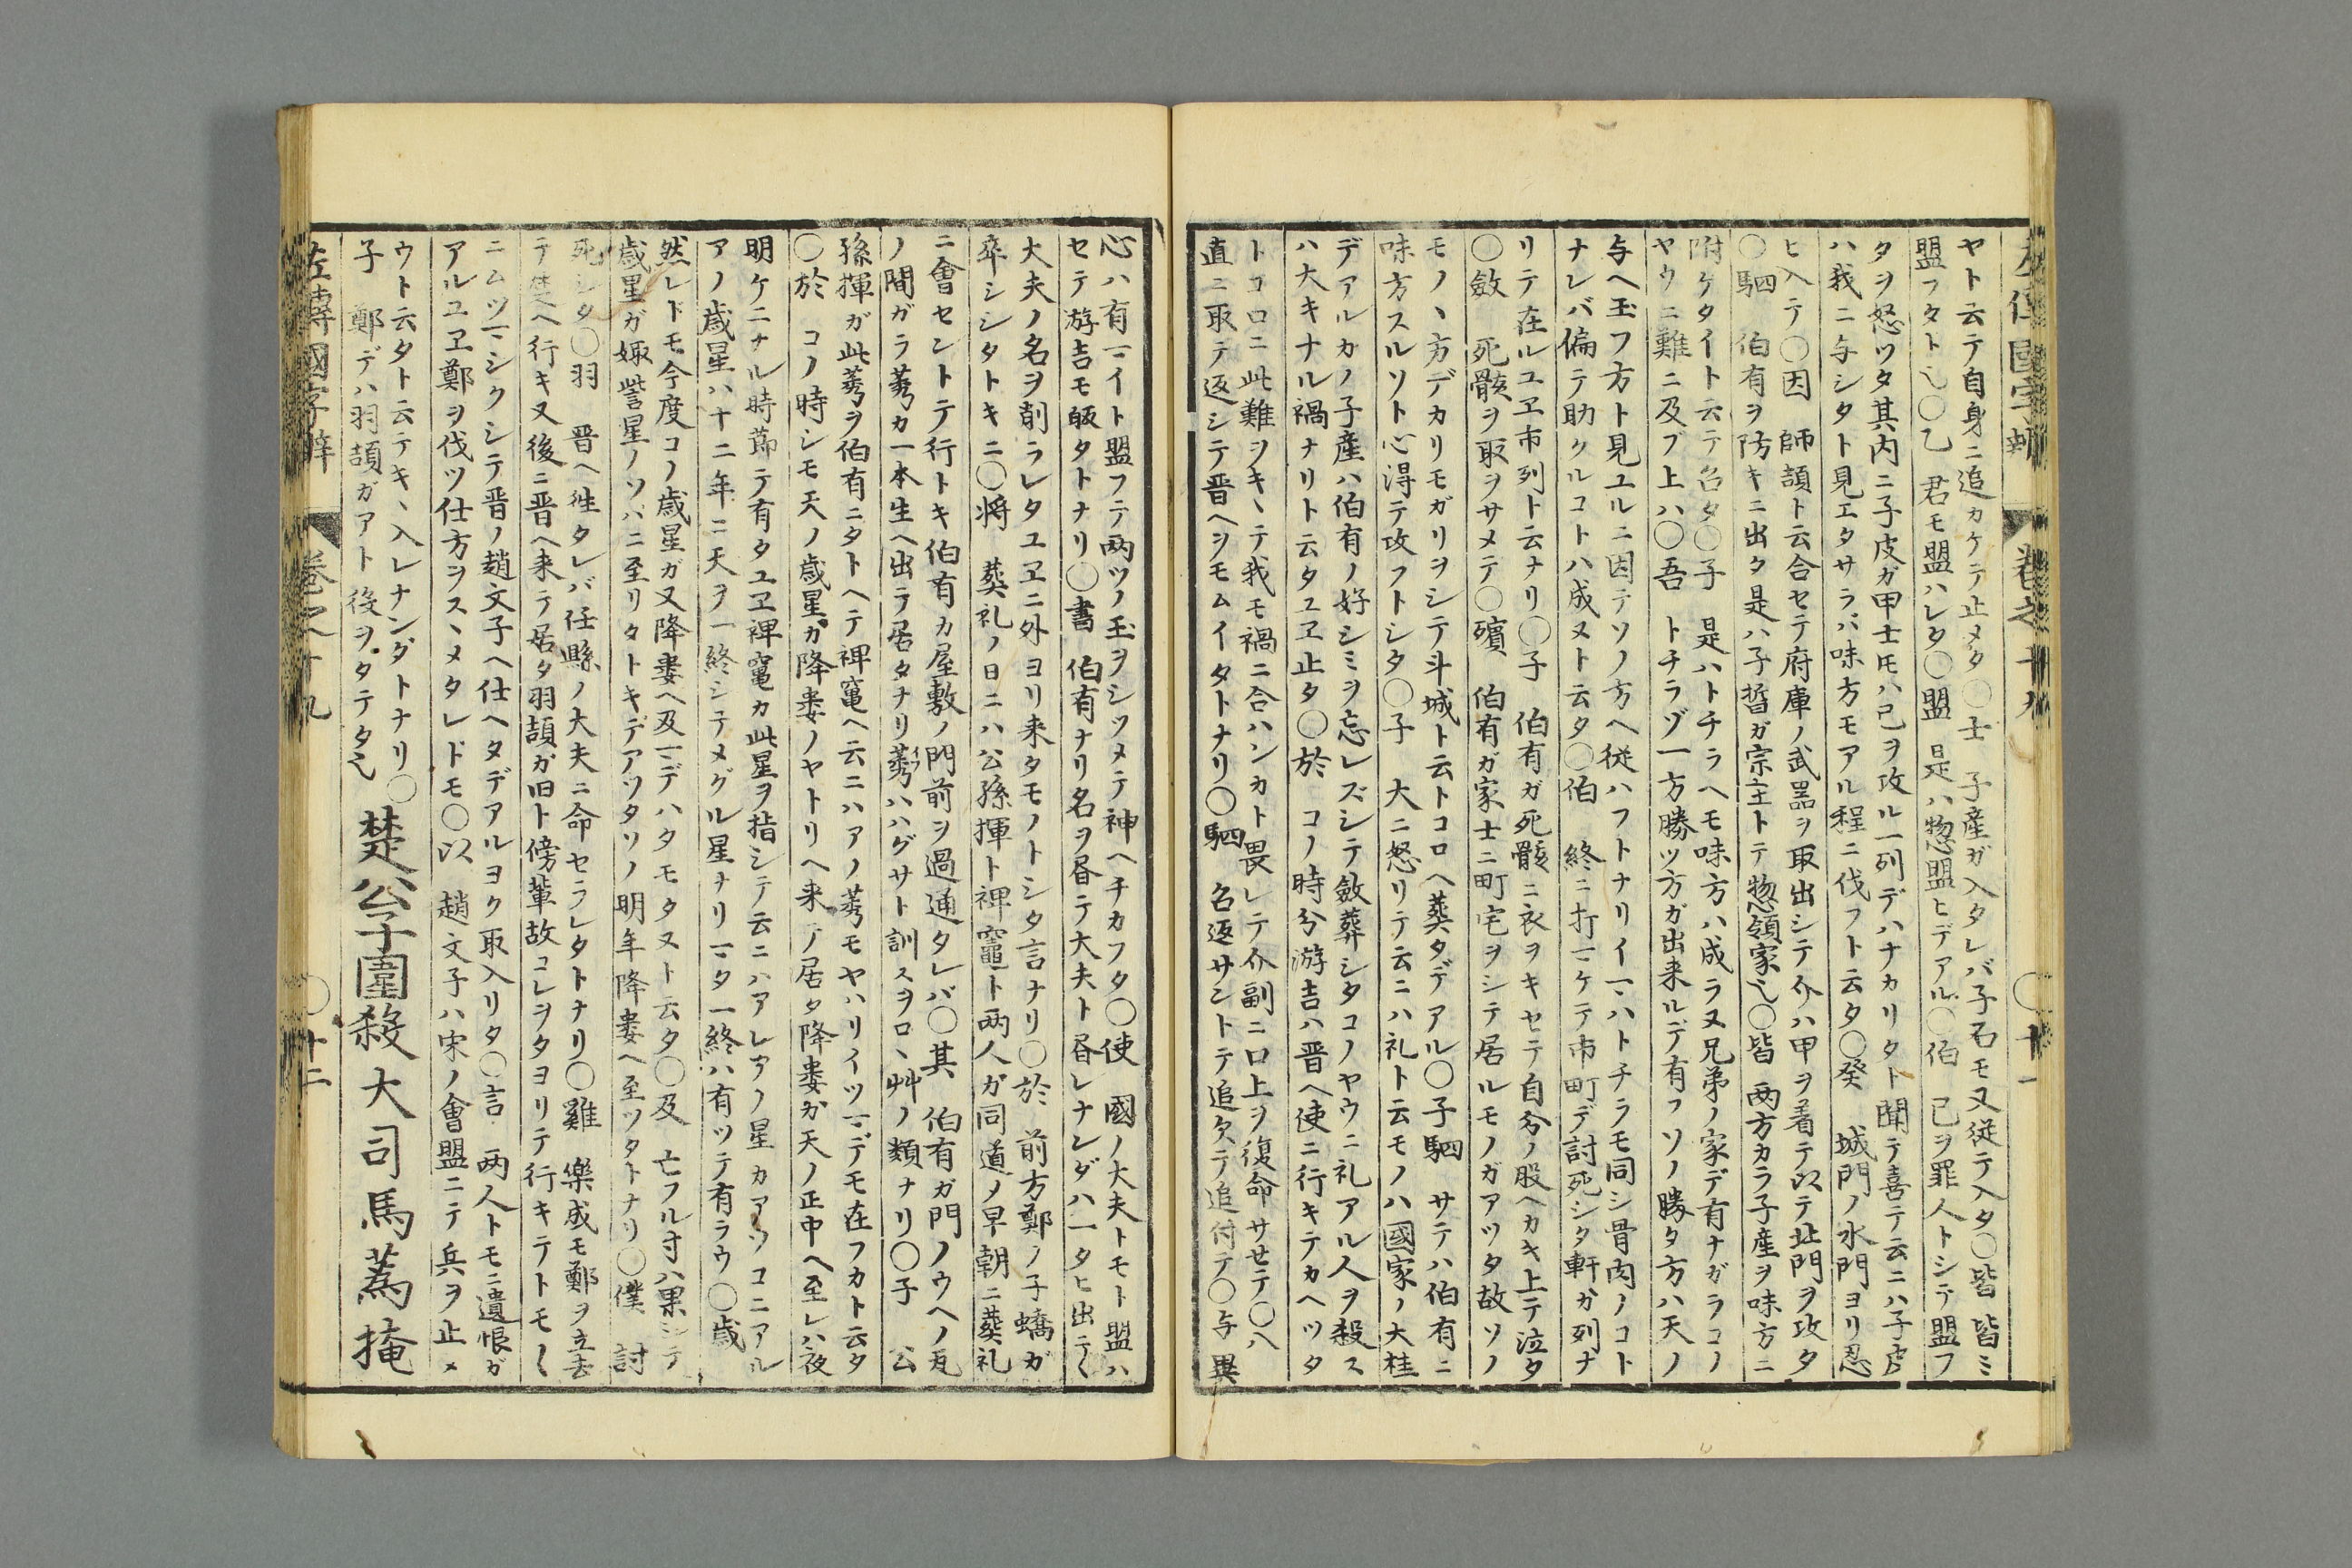 左傳國字辯 卷之十九 〇十一
ヤト云テ自身ニ追カケテ止メタ〇士 子產ガ入タレバ子石モ又従テ入タ〇皆 皆ミ
盟フタト乀〇乙 君モ盟ハレタ〇盟 是ハ惣盟ヒデアル〇伯 己ヲ罪人トシテ盟フ
タヲ怒ツタ其内ニ子皮ガ甲士𪜈ハ己ヲ攻ル一列デハナカリタト聞テ喜テ云ニハ子皮
ハ我ニ与シタト見エタサラバ味方モアル程ニ伐フト云タ〇癸 城門ノ水門ヨリ忍
ヒ入テ〇因 師頡ト云合セテ府庫ノ武噐ヲ取出シテ介ハ甲ヲ着テ以テ北門ヲ攻タ
〇駟 伯有ヲ防キニ出タ是ハ子晳ガ宗主トテ惣領家乀〇皆 两方カラ子產ヲ味方ニ
附ケタイト云テ召タ〇子 是ハトチラヘモ味方ハ成ラヌ兄弟ノ家デ有ナガラコノ
ヤウニ難ニ及ブ上ハ〇吾 トチラゾ一方勝ツ方ガ出来ルデ有フソノ勝タ方ハ天ノ
与ヘ玉フ方ト見ユルニ因テソノ方ヘ従ハフトナリイマハトチラモ同シ骨肉ノコト
ナレバ偏テ助クルコトハ成ヌト云タ〇伯 終ニ打マケテ市町デ討死シタ軒ガ列ナ
リテ在ルユヱ市列ト云ナリ〇子 伯有ガ死骸ニ衣ヲキセテ自分ノ股ヘカキ上テ泣タ
〇斂 死骸ヲ取ヲサメテ〇殯 伯有ガ家士ニ町宅ヲシテ居ルモノガアツタ故ソノ
モノヽ方デカリモガリヲシテ斗城ト云トコロヘ葬タデアル〇子駟 サテハ伯有ニ
味方スルソト心得テ攻フトシタ〇子 大ニ怒リテ云ニハ礼ト云モノハ國家ノ大柱
デアルカノ子產ハ伯有ノ好シミヲ忘レズシテ斂葬シタコノヤウニ礼アル人ヲ殺ス
ハ大キナル禍ナリト云タユヱ止タ〇於 コノ時分游吉ハ晋ヘ使ニ行キテカヘツタ
トコロニ此難ヲキヽテ我モ禍ニ合ハンカト畏レテ介副ニ口上ヲ復命サセテ〇八
直ニ取テ返シテ晋ヘヲモムイタトナリ〇駟 名返サントテ追タテ追付テ〇与 異
心ハ有マイト盟フテ两ツノ玉ヲシツメテ神ヘチカフタ〇使 國ノ大夫トモト盟ハ
セテ游吉モ皈タトナリ〇書 伯有ナリ名ヲ昏テ大夫ト昏レナンダハ一タヒ出テ〱
大夫ノ名ヲ削ラレタユヱニ外ヨリ来タモノトシタ言ナリ〇於 前方鄭ノ子蟜ガ
卒シシタトキニ〇将 葬礼ノ日ニハ公孫揮ト裨竈ト两人ガ同道ノ早朝ニ葬礼
ニ會セントテ行トキ伯有カ屋敷ノ門前ヲ過通タレバ〇其 伯有ガ門ノウヘノ瓦
ノ間ガラ莠カ一本生ヘ出テ居タナリ莠ハハグサト訓スヲロヽ艸ノ類ナリ〇子 公
孫揮ガ此莠ヲ伯有ニタトヘテ裨竈ヘ云ニハアノ莠モヤハリイツマデモ在フカト云タ
〇於 コノ時シモ天ノ歳星ガ降婁ノヤトリヘ来テ居タ降婁ガ天ノ正中ヘ至レハ夜
明ケニナル時節テ有タユヱ裨竈カ此星ヲ指シテ云ニハアレアノ星カアソコニアル
アノ歳星ハ十二年ニ天ヲ一終シテメグル星ナリマタ一終ハ有ツテ有ラウ〇歳
然レドモ今度コノ歳星ガ又降婁ヘ及マデハタモタヌト云タ〇及 亡フル寸ハ果シテ
歳星ガ娵訾星ノソバニ至リタトキデアツタソノ明年降婁ヘ至ツタトナリ〇僕 討
死シタ〇羽 晋ヘ徃タレバ任縣ノ大夫ニ命セラレタトナリ〇雞 樂成モ鄭ヲ立去
テ楚ヘ行キ又後ニ晋ヘ来テ居タ羽頡ガ旧ト傍輩故コレヲタヨリテ行キテトモ〱
ニムツマシクシテ晋ノ趙文子ヘ仕ヘタデアルヨク取入リタ〇言 两人トモニ遺恨ガ
アルユヱ鄭ヲ伐ツ仕方ヲスヽメタレドモ〇以 趙文子ハ宋ノ會盟ニテ兵ヲ止メ
ウト云タト云テキヽ入レナンダトナリ〇
子 鄭デハ羽頡ガアト後ヲタテタ乀 楚公子圍殺大司馬蔿掩
左傳國字辯 卷之十九 〇十二